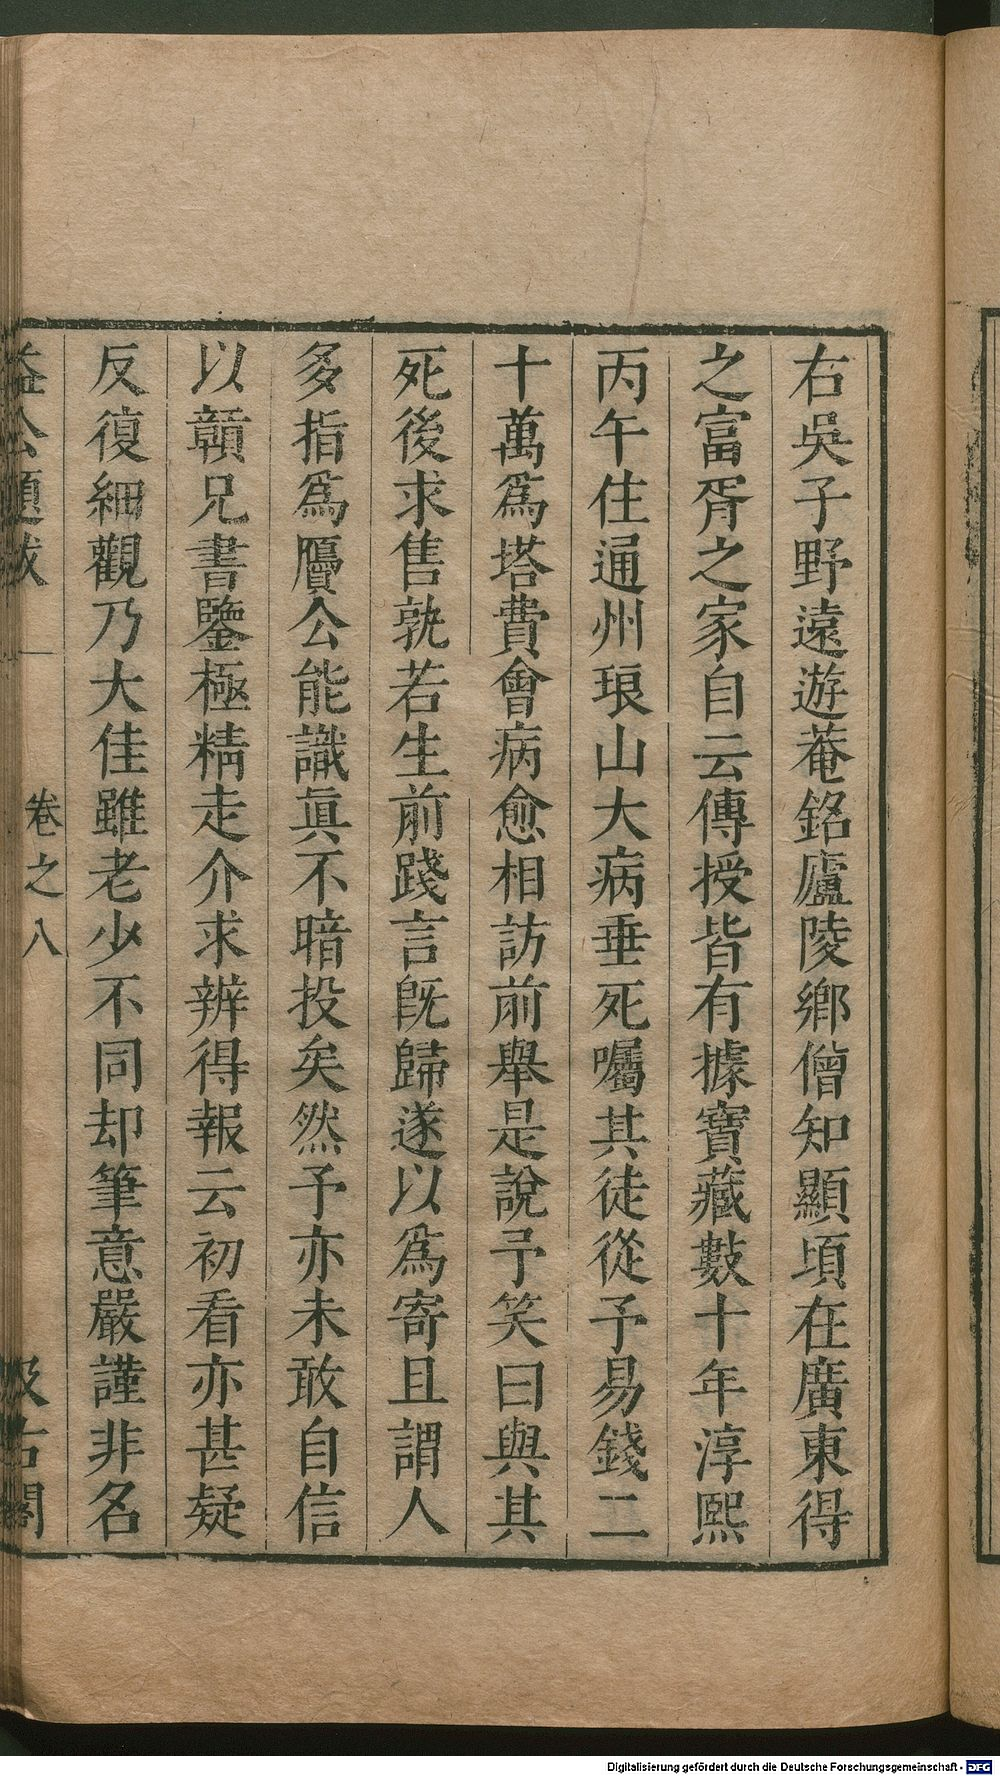 右吳子野遠遊菴銘廬陵鄉僧知顯頃在廣東得
之富胥之家自云傳授皆有據寶藏數十年淳熙
丙午住通州琅山大病垂死囑其徒從予易錢二
十萬爲塔費會病愈相訪前舉是說予笑曰與其
死後求售孰若生前踐言旣歸遂以爲寄且謂人
多指爲贗公能識眞不暗投矣然予亦未敢自信
以贛兄書鑒極精走介求辨得報云初看亦甚疑
反復細觀乃大佳雖老少不同却筆意嚴謹非名
益公題跋 卷之八 汲古閣
Digitalisierung gefördert durch die Deutsche Forschungsgemeinschaft - DFG